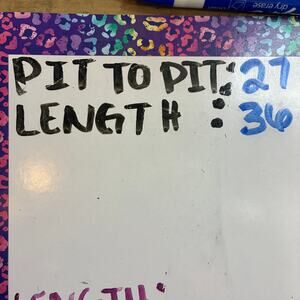 dry erase
PIT TO PIT: 27
LENGTH : 36
LENGTH: